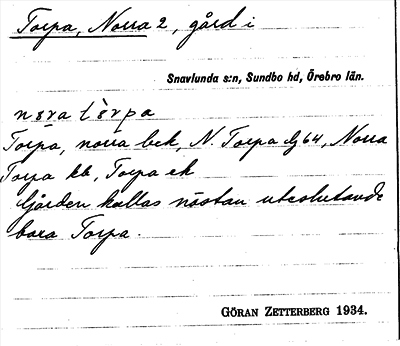 Torpa, Norra 2, gård i
Snavlunda s:n, Sundbo hd, Örebro län.
nɷra tɷrpa
Torpa, norra bek, N. Torpa dj 64, Norra
Torpa kb, Torpa ek
Gården kallas nästan uteslutande
bara Torpa.
GÖRAN ZETTERBERG 1934.